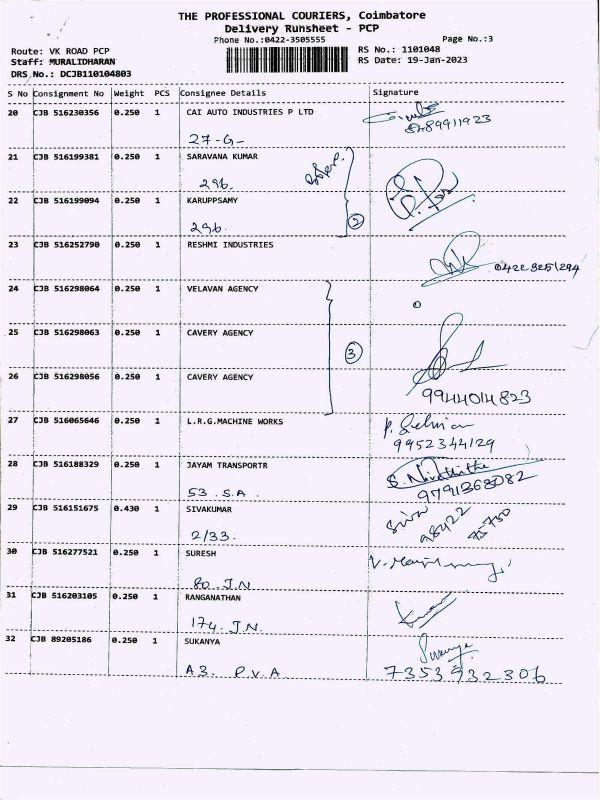 THE PROFESSIONAL COURIERS, Coimbatore
Delivery Runsheet - PCP
Phone No.:0422-3505555
Page No.:3
Route: VK ROAD PCP
Staff: MURALIDHARAN
DRS No.: DCJB110104803
RS No.: 1101048
RS Date: 19-Jan-2023
S No Consignment No Weight PCS Consignee Details Signature
20 CJB 516230356 0.250 1 CAI AUTO INDUSTRIES P LTD
8489911923
27-G-
21 CJB 516199381 0.250 1 SARAVANA KUMAR
296.
22 CJB 516199094 0.250 1 KARUPPSAMY
296. 2
23 CJB 516252790 0.250 1 RESHMI INDUSTRIES
24 CJB 516298064 0.250 1 VELAVAN AGENCY
25 CJB 516298063 0.250 1 CAVERY AGENCY
3
26 CJB 516298056 0.250 1 CAVERY AGENCY
9944014823
27 CJB 516065646 0.250 1 L.R.G.MACHINE WORKS
9952344129
28 CJB 516188329 0.250 1 JAYAM TRANSPORTR
53 S.A. 9791368082
29 CJB 516151675 0.430 1 SIVAKUMAR
Siva 98422
2/33.
30 CJB 516277521 0.250 1 SURESH
80 J.N
31 CJB 516203105 0.250 1 RANGANATHAN
174. J.N.
32 CJB 89205186 0.250 1 SUKANYA
A3. P.V.A 7353932306